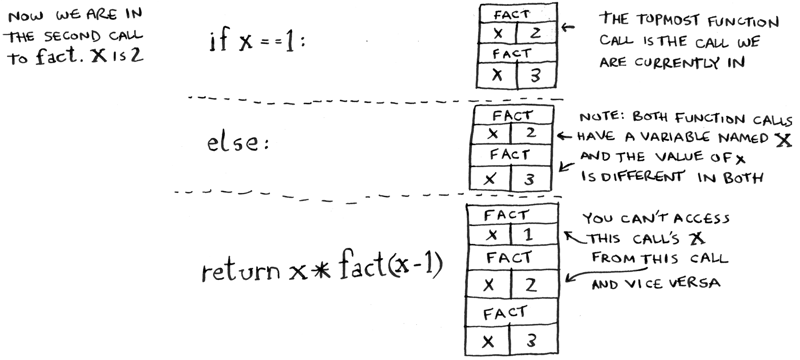 NOW WE ARE IN
THE SECOND CALL
TO fact. X IS 2
if x ==1:
FACT
X 2
FACT
X 3
THE TOPMOST FUNCTION
CALL IS THE CALL WE
ARE CURRENTLY IN
else:
FACT
X 2
FACT
X 3
NOTE: BOTH FUNCTION CALLS
HAVE A VARIABLE NAMED X
AND THE VALUE OF X
IS DIFFERENT IN BOTH
return x * fact(x-1)
FACT
X 1
FACT
X 2
FACT
X 3
YOU CAN'T ACCESS
THIS CALL'S X
FROM THIS CALL
AND VICE VERSA